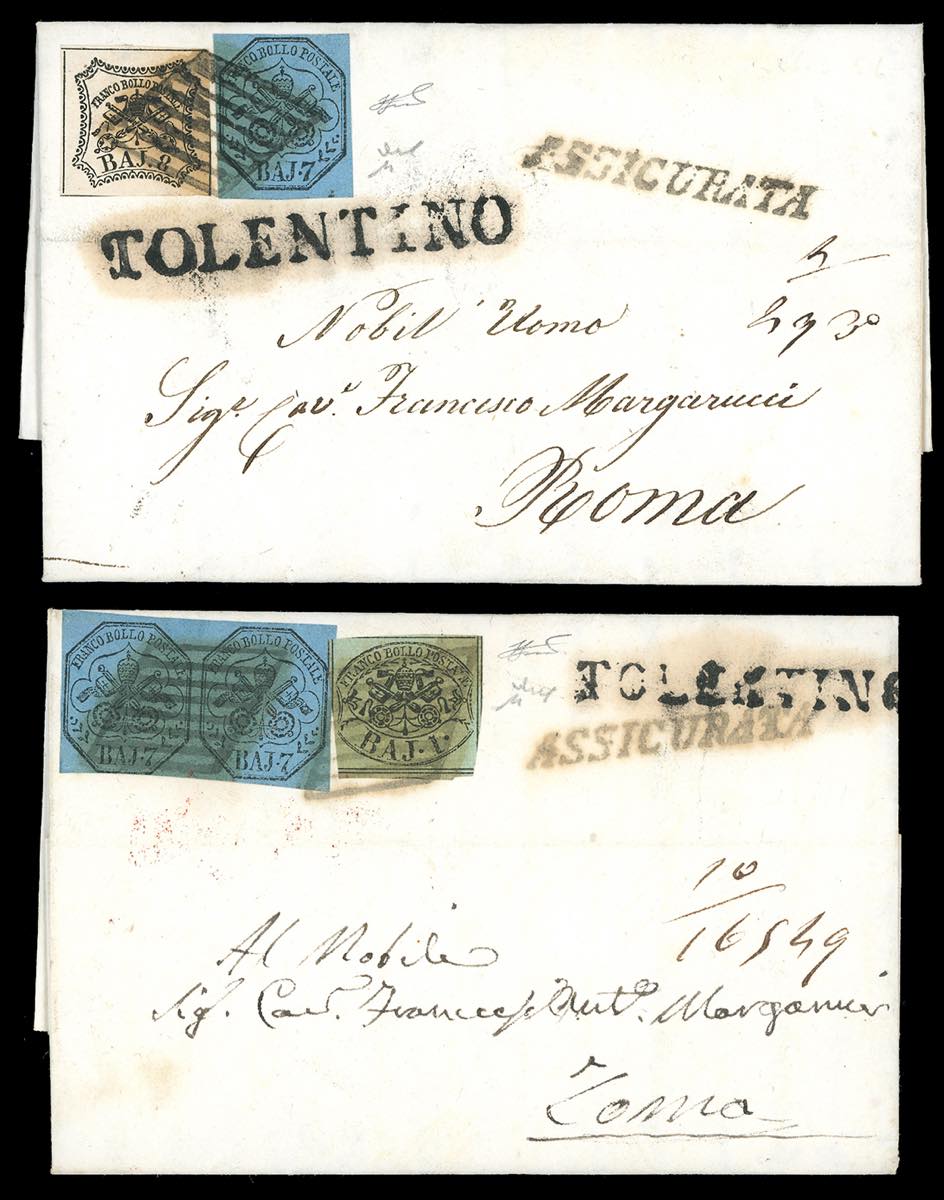 FRANCO BOLLO POSTALE
BAJ. 8
FRANCO BOLLO POSTALE
BAJ·7
ASSICURATA
TOLENTINO
Nobil' Uomo
Sigr. Cavr. Francesco Margarucci
Roma
FRANCO BOLLO POSTALE
BAJ·7
FRANCO BOLLO POSTALE
BAJ·7
FRANCO BOLLO POSTALE
BAJ. 1.
TOLENTINO
ASSICURATA
10
16549
Al Nobile
Sig. Cav. Margarucci
Roma